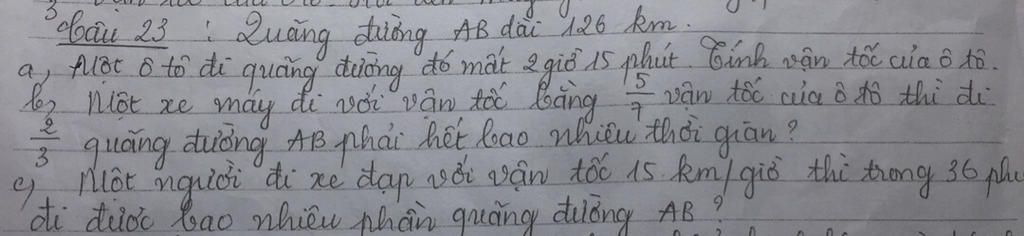 Câu 23 : Quãng đường AB dài 126 km.
a, Một ô tô đi quãng đường đó mất 2 giờ 15 phút. Tính vận tốc của ô tô.
b, Một xe máy đi với vận tốc bằng 5/7 vận tốc của ô tô thì đi
2/3 quãng đường AB phải hết bao nhiêu thời gian?
c, Một người đi xe đạp với vận tốc 15 km/giờ thì trong 36 phú
đi được bao nhiêu phần quãng đường AB?